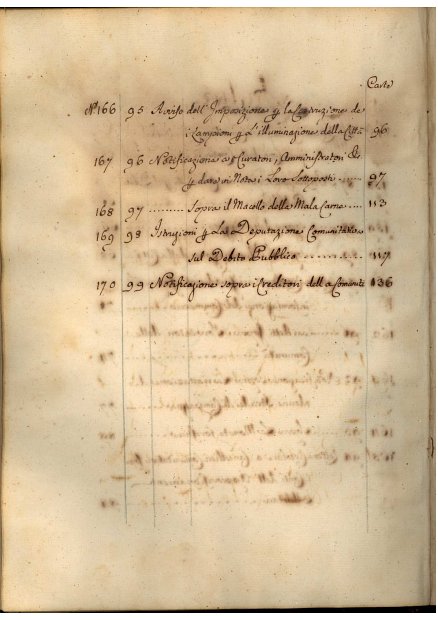 Carte
N.º 166 95 Avviso dell'Imposizione p la Costruzione de
i Lampioni p L'illuminazione della Città 96
167 96 Notificazione a' Curatori, Amministratori &c
p dare in Nota i Loro Sottoposti ...... 97
168 97 ......... Sopra il Macello della Mala Carne .... 113
169 98 Istruzioni p La Deputazione Comunitativa
sul Debito Pubblico ......... 117
170 99 Notificazione sopra i Creditori della Comunità 136